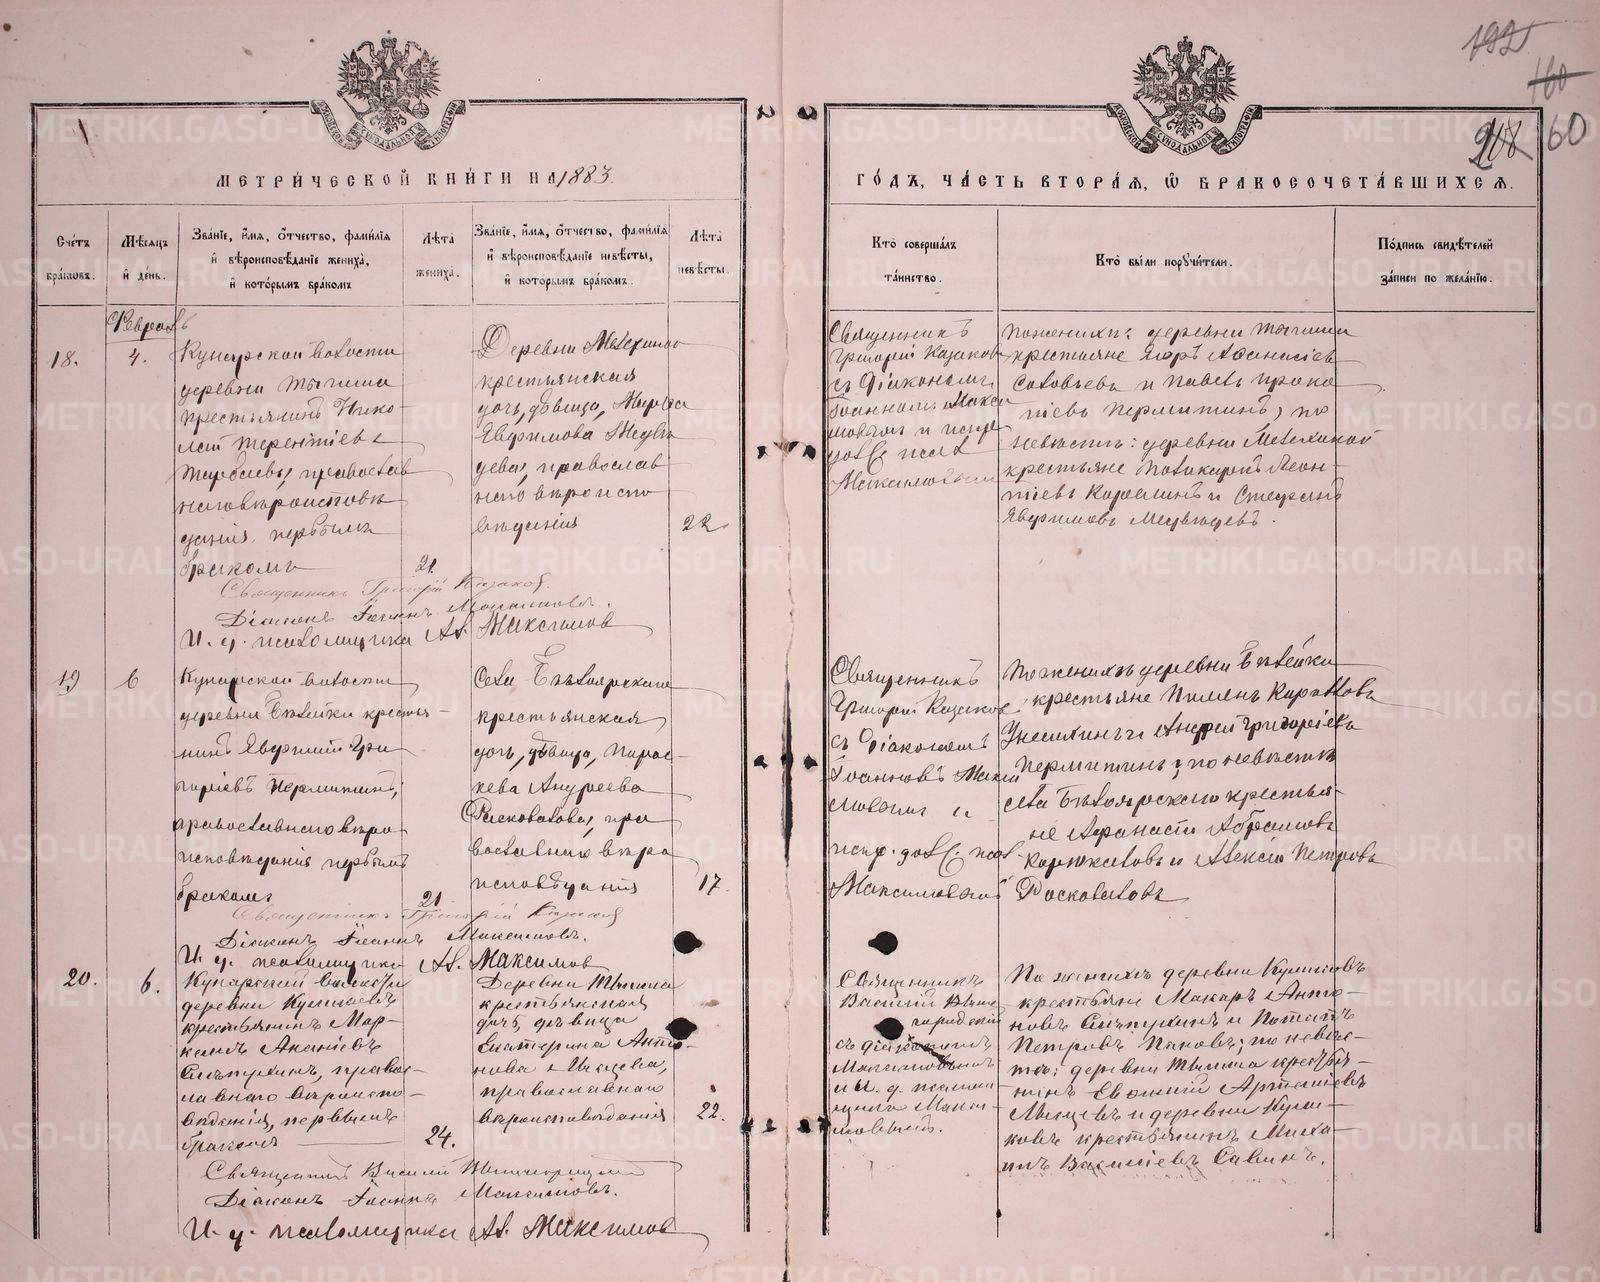 192
160
218 60
МЕТРИЧЕСКОЙ КНИГИ НА 1883
ГОДЪ, ЧАСТЬ ВТОРАЯ, Ѡ БРАКОСОЧЕТАВШИХСЯ.
Счетъ браковъ.
Мѣсяцъ и день.
Званіе, имя, отчество, фамилія и вѣроисповѣданіе жениха, и которымъ бракомъ
Лѣта жениха.
Званіе, имя, отчество, фамилія и вѣроисповѣданіе невѣсты, и которымъ бракомъ.
Лѣта невѣсты.
Кто совершалъ таинство.
Кто были поручители.
Подпись свидѣтелей записи по желанію.
Февраль
18.
4.
Кунарской волости
деревни Тыгиша
крестьянинъ Нико-
лай Терентіевъ
православ
наго вѣроисповѣ
данія, первымъ
бракомъ
21.
Деревни
крестьянская
дочь, дѣвица, Марѳа
Явфимова Медвѣ
дева, православ
наго вѣроиспо
вѣданія
22
Священникъ
Григорій Казаков
съ Діакономъ
Іоанномъ Макси
мовымъ и испр.
должн. псал.
Максимовымъ
По женихѣ: деревни Тыгиша
крестьяне Ягоръ Аѳанасіевъ
Соловьевъ и Павелъ Проко
піевъ Пермитинъ; по
невѣстѣ: деревни
крестьяне Поликарпъ Леон-
тіевъ и Стефанъ
Явфимовъ Медвѣдевъ.
Священникъ Григорій Казаковъ.
Діаконъ Іоаннъ Максимовъ.
И. д. псаломщика Ал. Максимов
19
6
Кунарской волости
деревни Бѣлейки крестья-
нинъ Явгеній Гри
горіевъ Пермитинъ,
православнаго вѣро-
исповѣданія первымъ
бракомъ
21.
Села Бѣлоярскаго
крестьянская
дочь, дѣвица, Парас-
кева Андреева
Росковалова, пра
вославнаго вѣро
исповѣданія
17.
Священникъ
Григорій Казаков
съ Діакономъ
Іоанномъ Макси
мовымъ и
испр. должн. псал.
Максимовымъ
По женихѣ деревни Бѣлейки
крестьяне Пименъ Карповъ
и Андрей Григоріевъ
Пермитинъ; по невѣстѣ
села Бѣлоярскаго крестья-
не Аѳанасій Абрамовъ
и Алексій Петровъ
Росковаловъ
Священникъ Григорій Казаков
Діаконъ Іоаннъ Максимовъ.
И. д. псаломщика Ал. Максимов
20.
6.
Кунарской волости
деревни
крестьянинъ Мар-
келлъ Ананіевъ
правос-
лавнаго вѣроиспо-
вѣданія, первымъ
бракомъ
24.
Деревни Тыгиша
крестьянская
дочь, дѣвица
Екатерина Анто-
нова
православнаго
вѣроисповѣданія
22.
Священникъ
Василій Выше-
городскій
съ діакономъ
Максимовымъ
и И. д. псалом-
щика Макси-
мовымъ.
По женихѣ деревни
крестьяне Макаръ Анто-
новъ и Потапъ
Петровъ Пановъ; по невѣс-
тѣ: деревни Тыгиша крестья-
нинъ Артеміевъ
и деревни
крестьянинъ Миха-
илъ Василіевъ Савинъ.
Священникъ Василій Вышегородскій
Діаконъ Іоаннъ Максимовъ.
И. д. псаломщика Ал. Максимов
METRIKI.GASO-URAL.RU